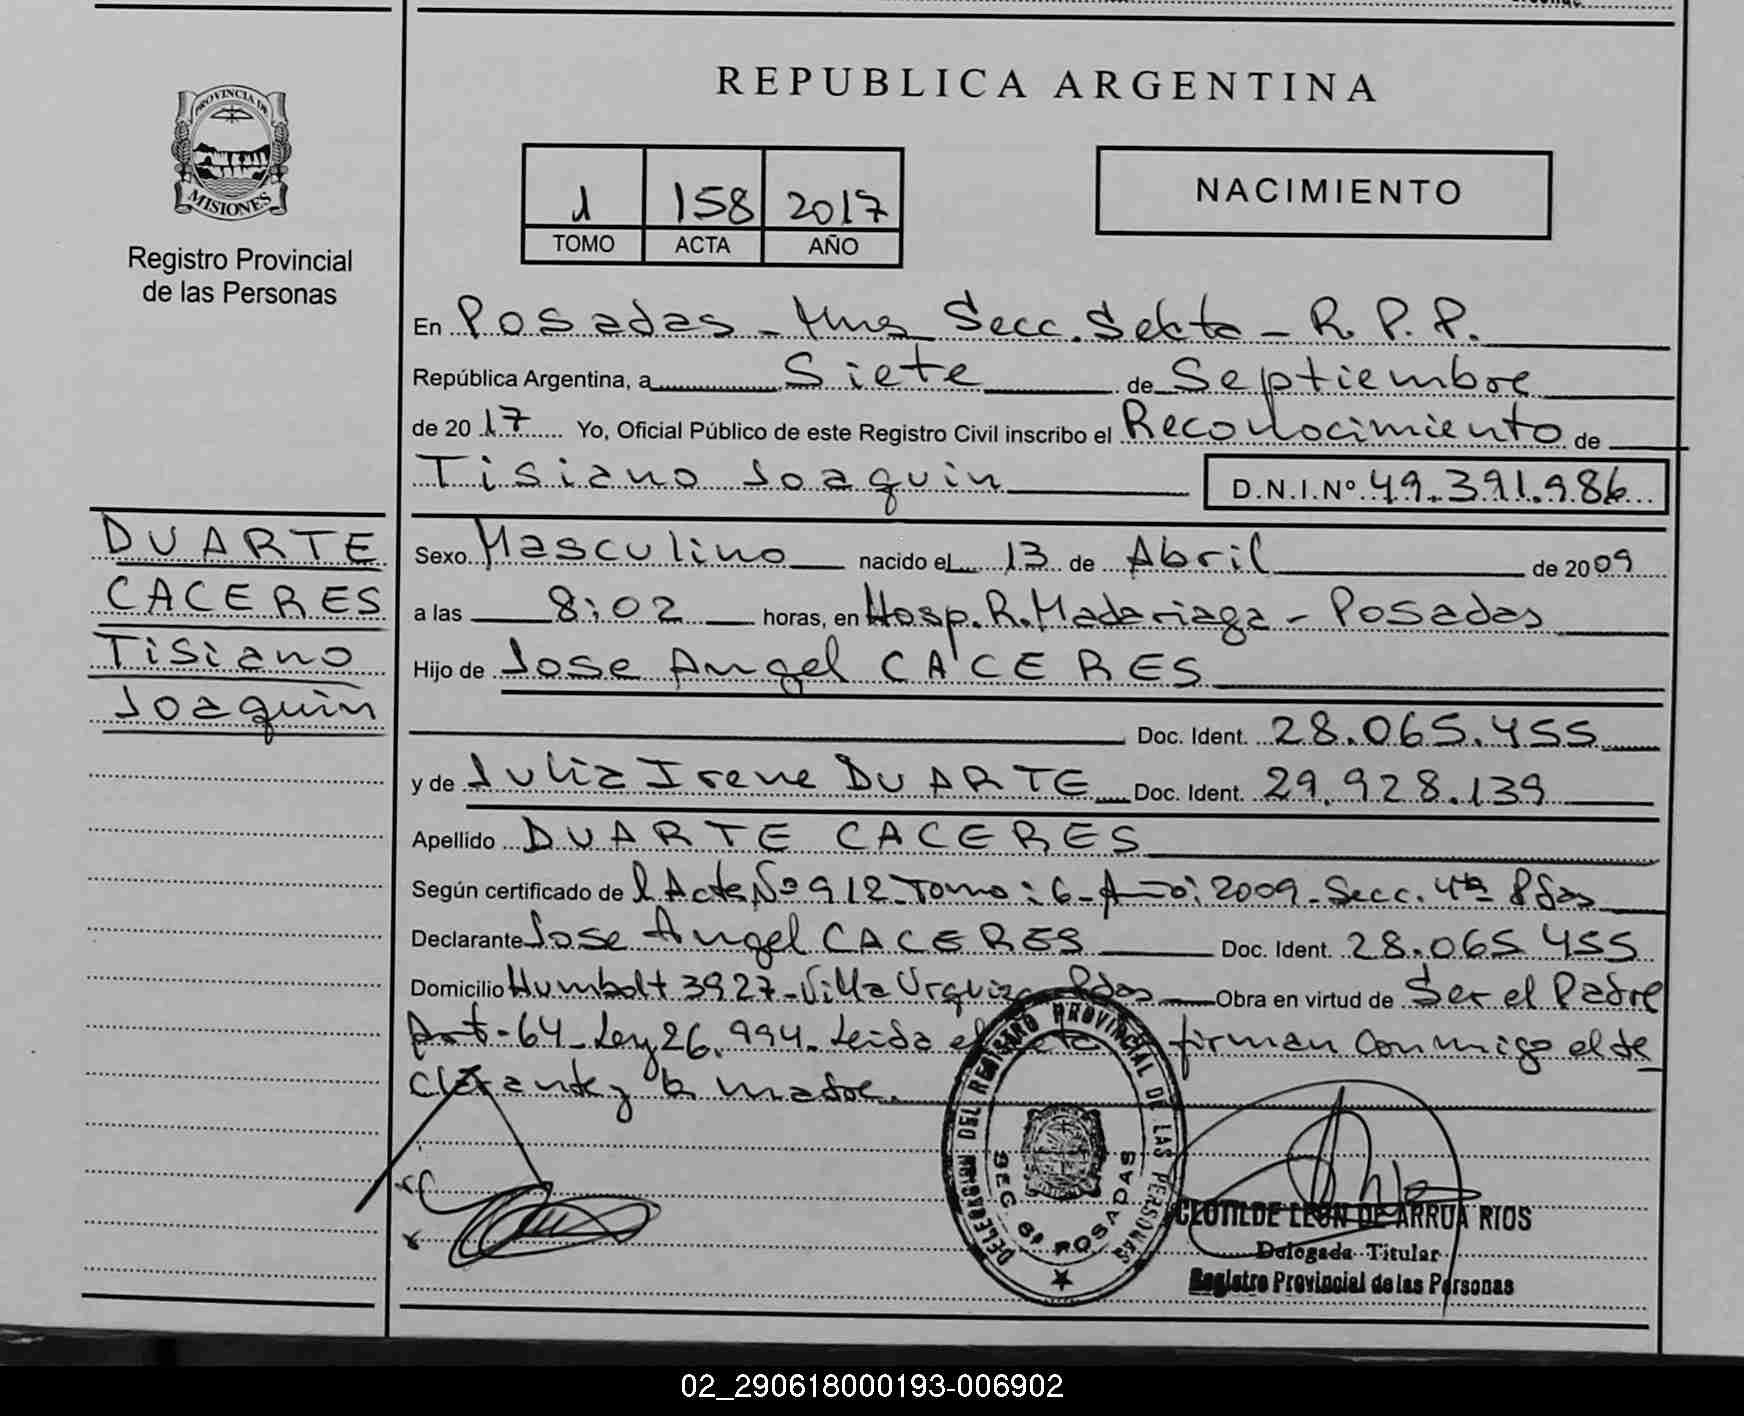 PROVINCIA DE
MISIONES
Registro Provincial
de las Personas
REPUBLICA ARGENTINA
1 158 2017
TOMO ACTA AÑO
NACIMIENTO
En Posadas - Mnes Secc. Sexta - R. P. P.
República Argentina, a Siete de Septiembre
de 2017 Yo, Oficial Público de este Registro Civil inscribo el Reconocimiento de
Tisiano Joaquin D.N.I.Nº 49.391.986
DUARTE
CACERES
Tisiano
Joaquin
Sexo Masculino nacido el 13 de Abril de 2009
a las 8:02 horas, en Hosp. R. Madariaga - Posadas
Hijo de Jose Angel CACERES
Doc. Ident. 28.065.455
y de Julia Irene DUARTE Doc. Ident. 29.928.139
Apellido DUARTE CACERES
Según certificado de l Acta Nº 912 - Tomo: 6 - Año: 2009 - Secc. 4ta Pdas
Declarante Jose Angel CACERES Doc. Ident. 28.065 455
Domicilio Humbolt 3927 - Villa Urquiza Pdas Obra en virtud de Ser el Padre
Art - 64 - Ley 26.994. Leida el firman conmigo el de
clarante y la madre.
DELEGACION DEL REGISTRO PROVINCIAL DE LAS PERSONAS
SEC 6ª POSADAS
CLOTILDE LEON DE ARRUA RIOS
Delegada Titular
Registro Provincial de las Personas
02_290618000193-006902